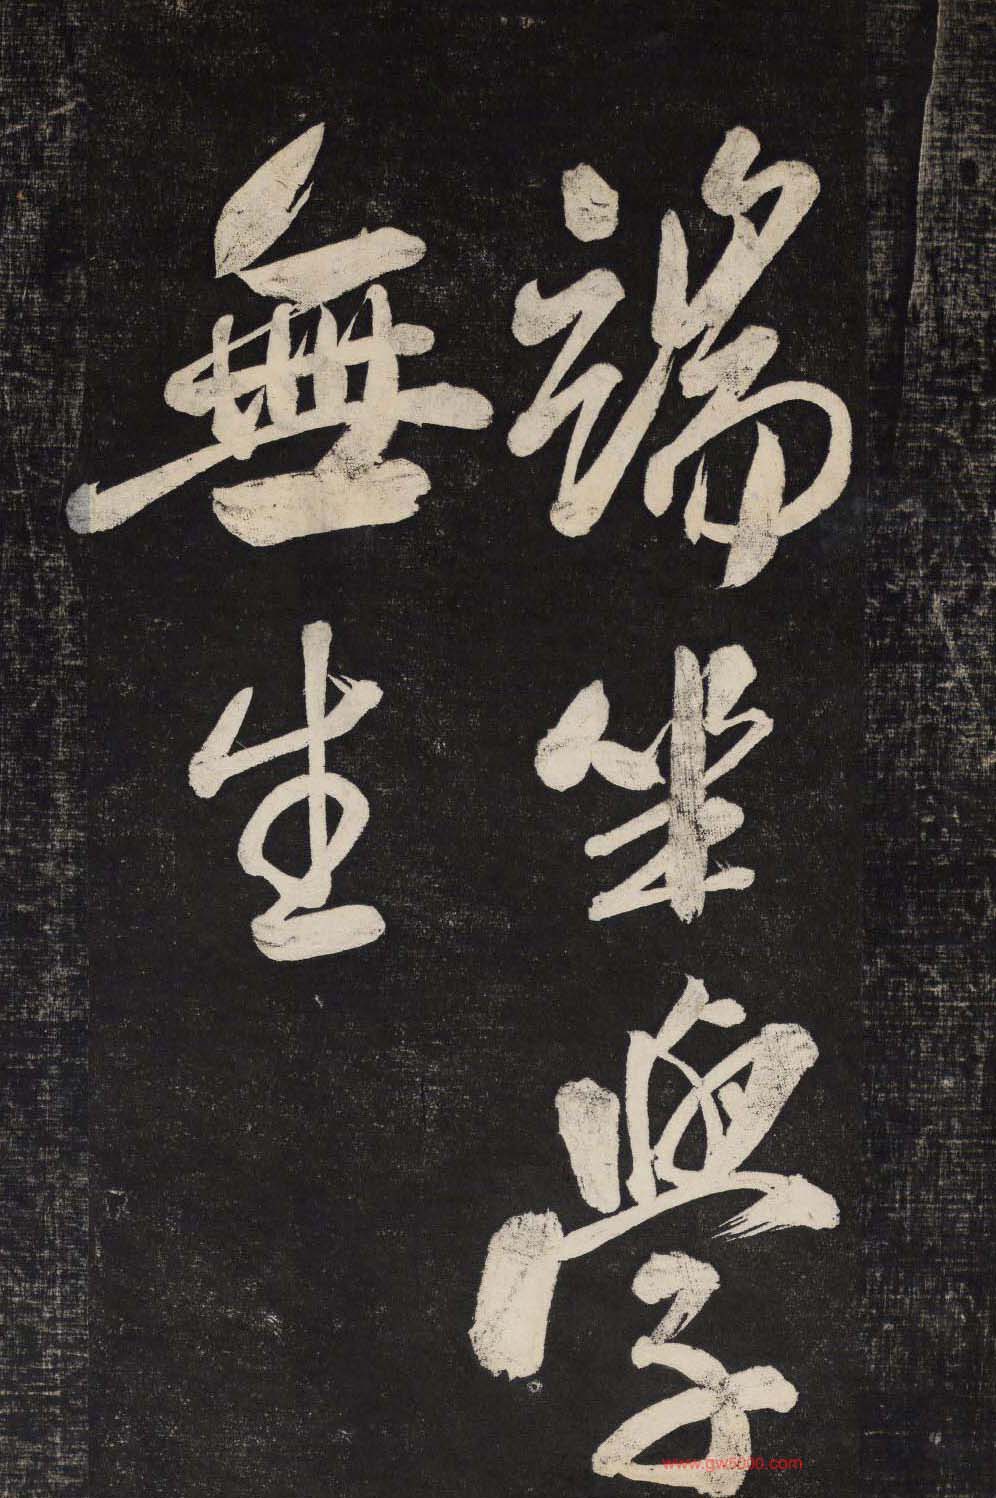 端坐學
無生
www.gw5000.com